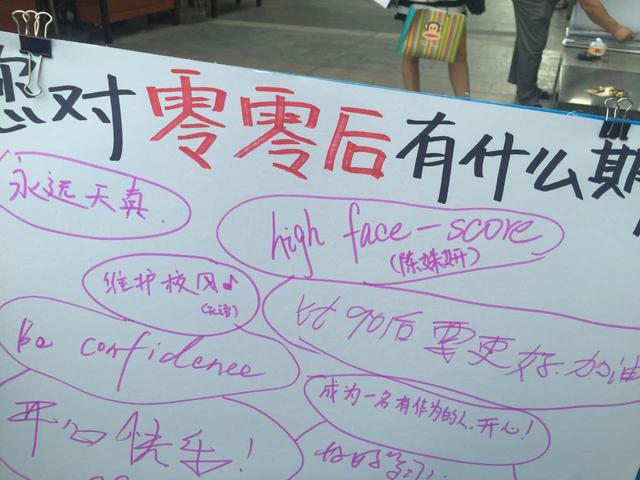 您对零零后有什么期
永远天真.
high face-score
(陈姝妍)
维护校风♪
比90后要更好.加油
Be confidence
成为一名有作为的人.开心!
开心快乐!
好好学习